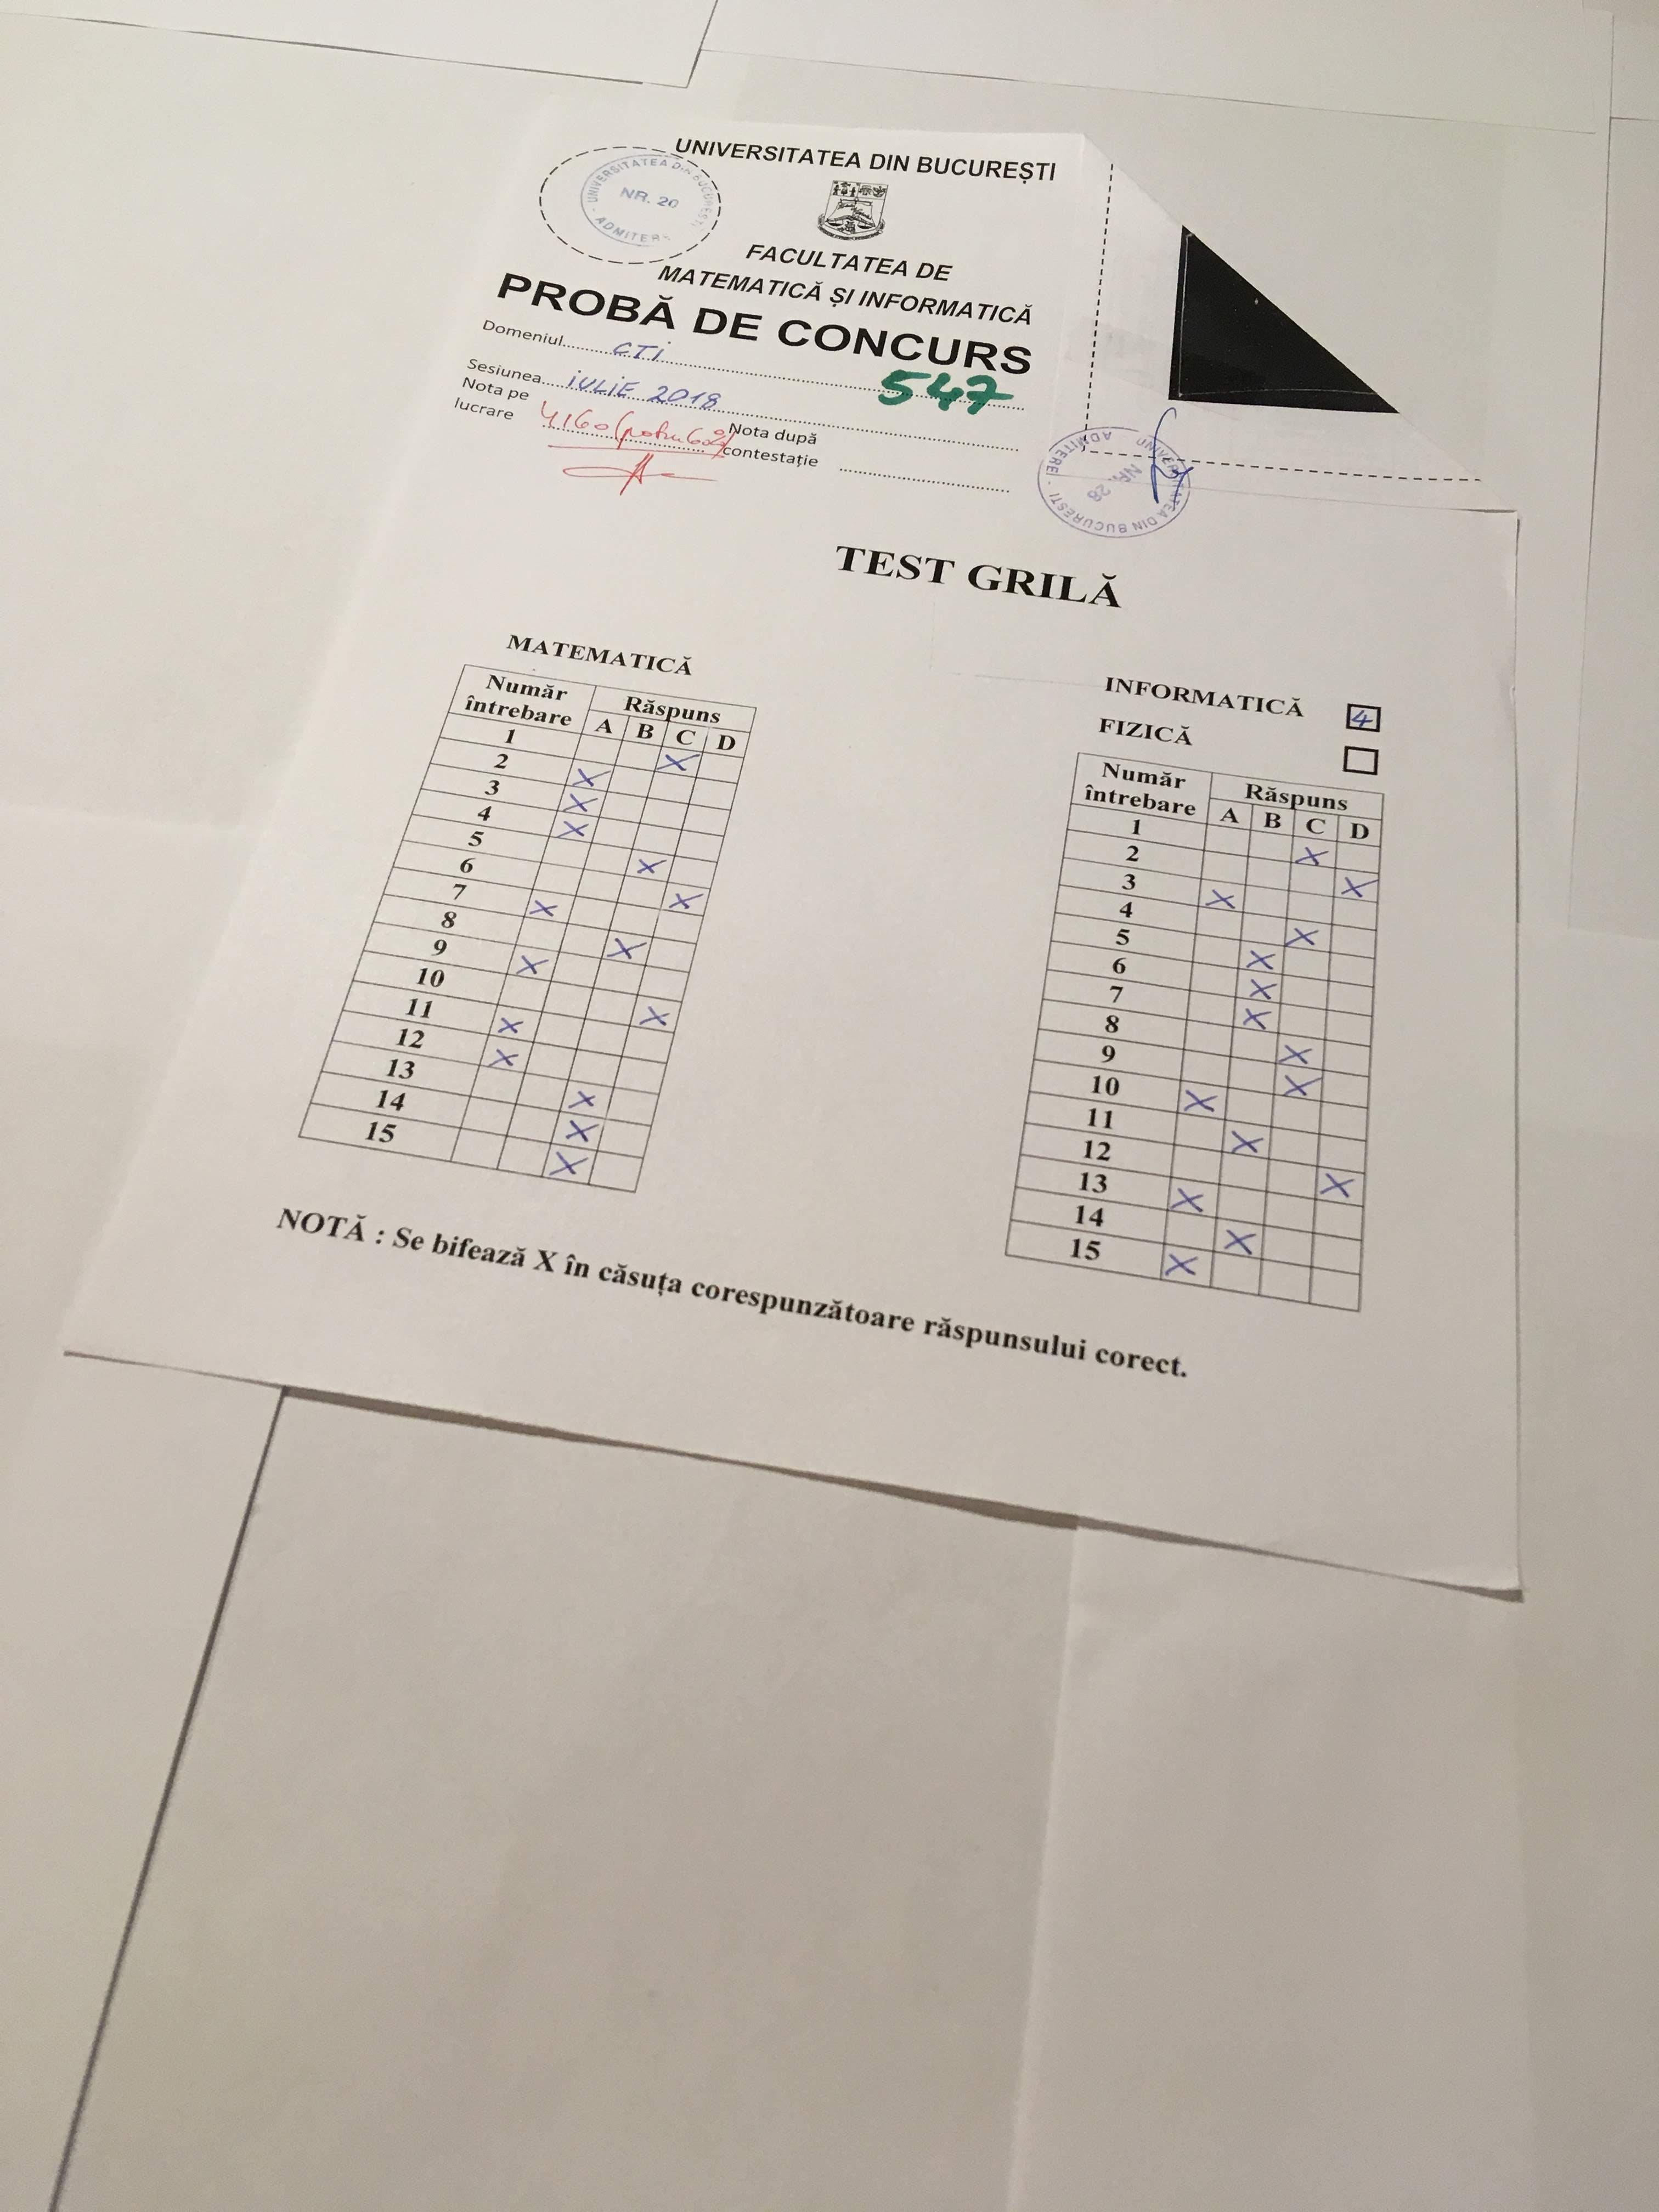 UNIVERSITATEA DIN BUCUREȘTI
UNIVERSITATEA DIN BUCURESTI
NR. 20
ADMITERE
FACULTATEA DE
MATEMATICĂ ȘI INFORMATICĂ
PROBĂ DE CONCURS
Domeniul CTI
547
Sesiunea IULIE 2018
Nota pe lucrare 4,60
Nota după contestație
UNIVERSITATEA DIN BUCURESTI
ADMITERE
NR. 28
TEST GRILĂ
MATEMATICĂ
Număr întrebare Răspuns
A B C D
1 X
2 X
3 X
4 X
5 X
6 X
7 X
8 X
9 X
10 X
11 X
12 X
13 X
14 X
15 X
INFORMATICĂ 4
FIZICĂ
Număr întrebare Răspuns
A B C D
1 X
2 X
3 X
4 X
5 X
6 X
7 X
8 X
9 X
10 X
11 X
12 X
13 X
14 X
15 X
NOTĂ : Se bifează X în căsuța corespunzătoare răspunsului corect.